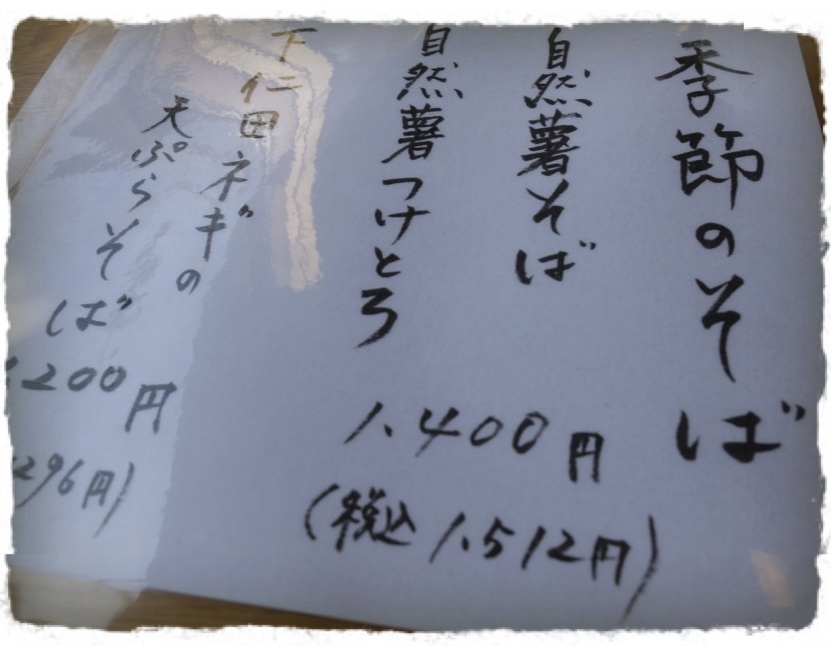 季節のそば
自然薯そば
自然薯つけとろ
1.400円
(税込 1.512円)
下仁田ネギの
天ぷらそば
200円
296円)